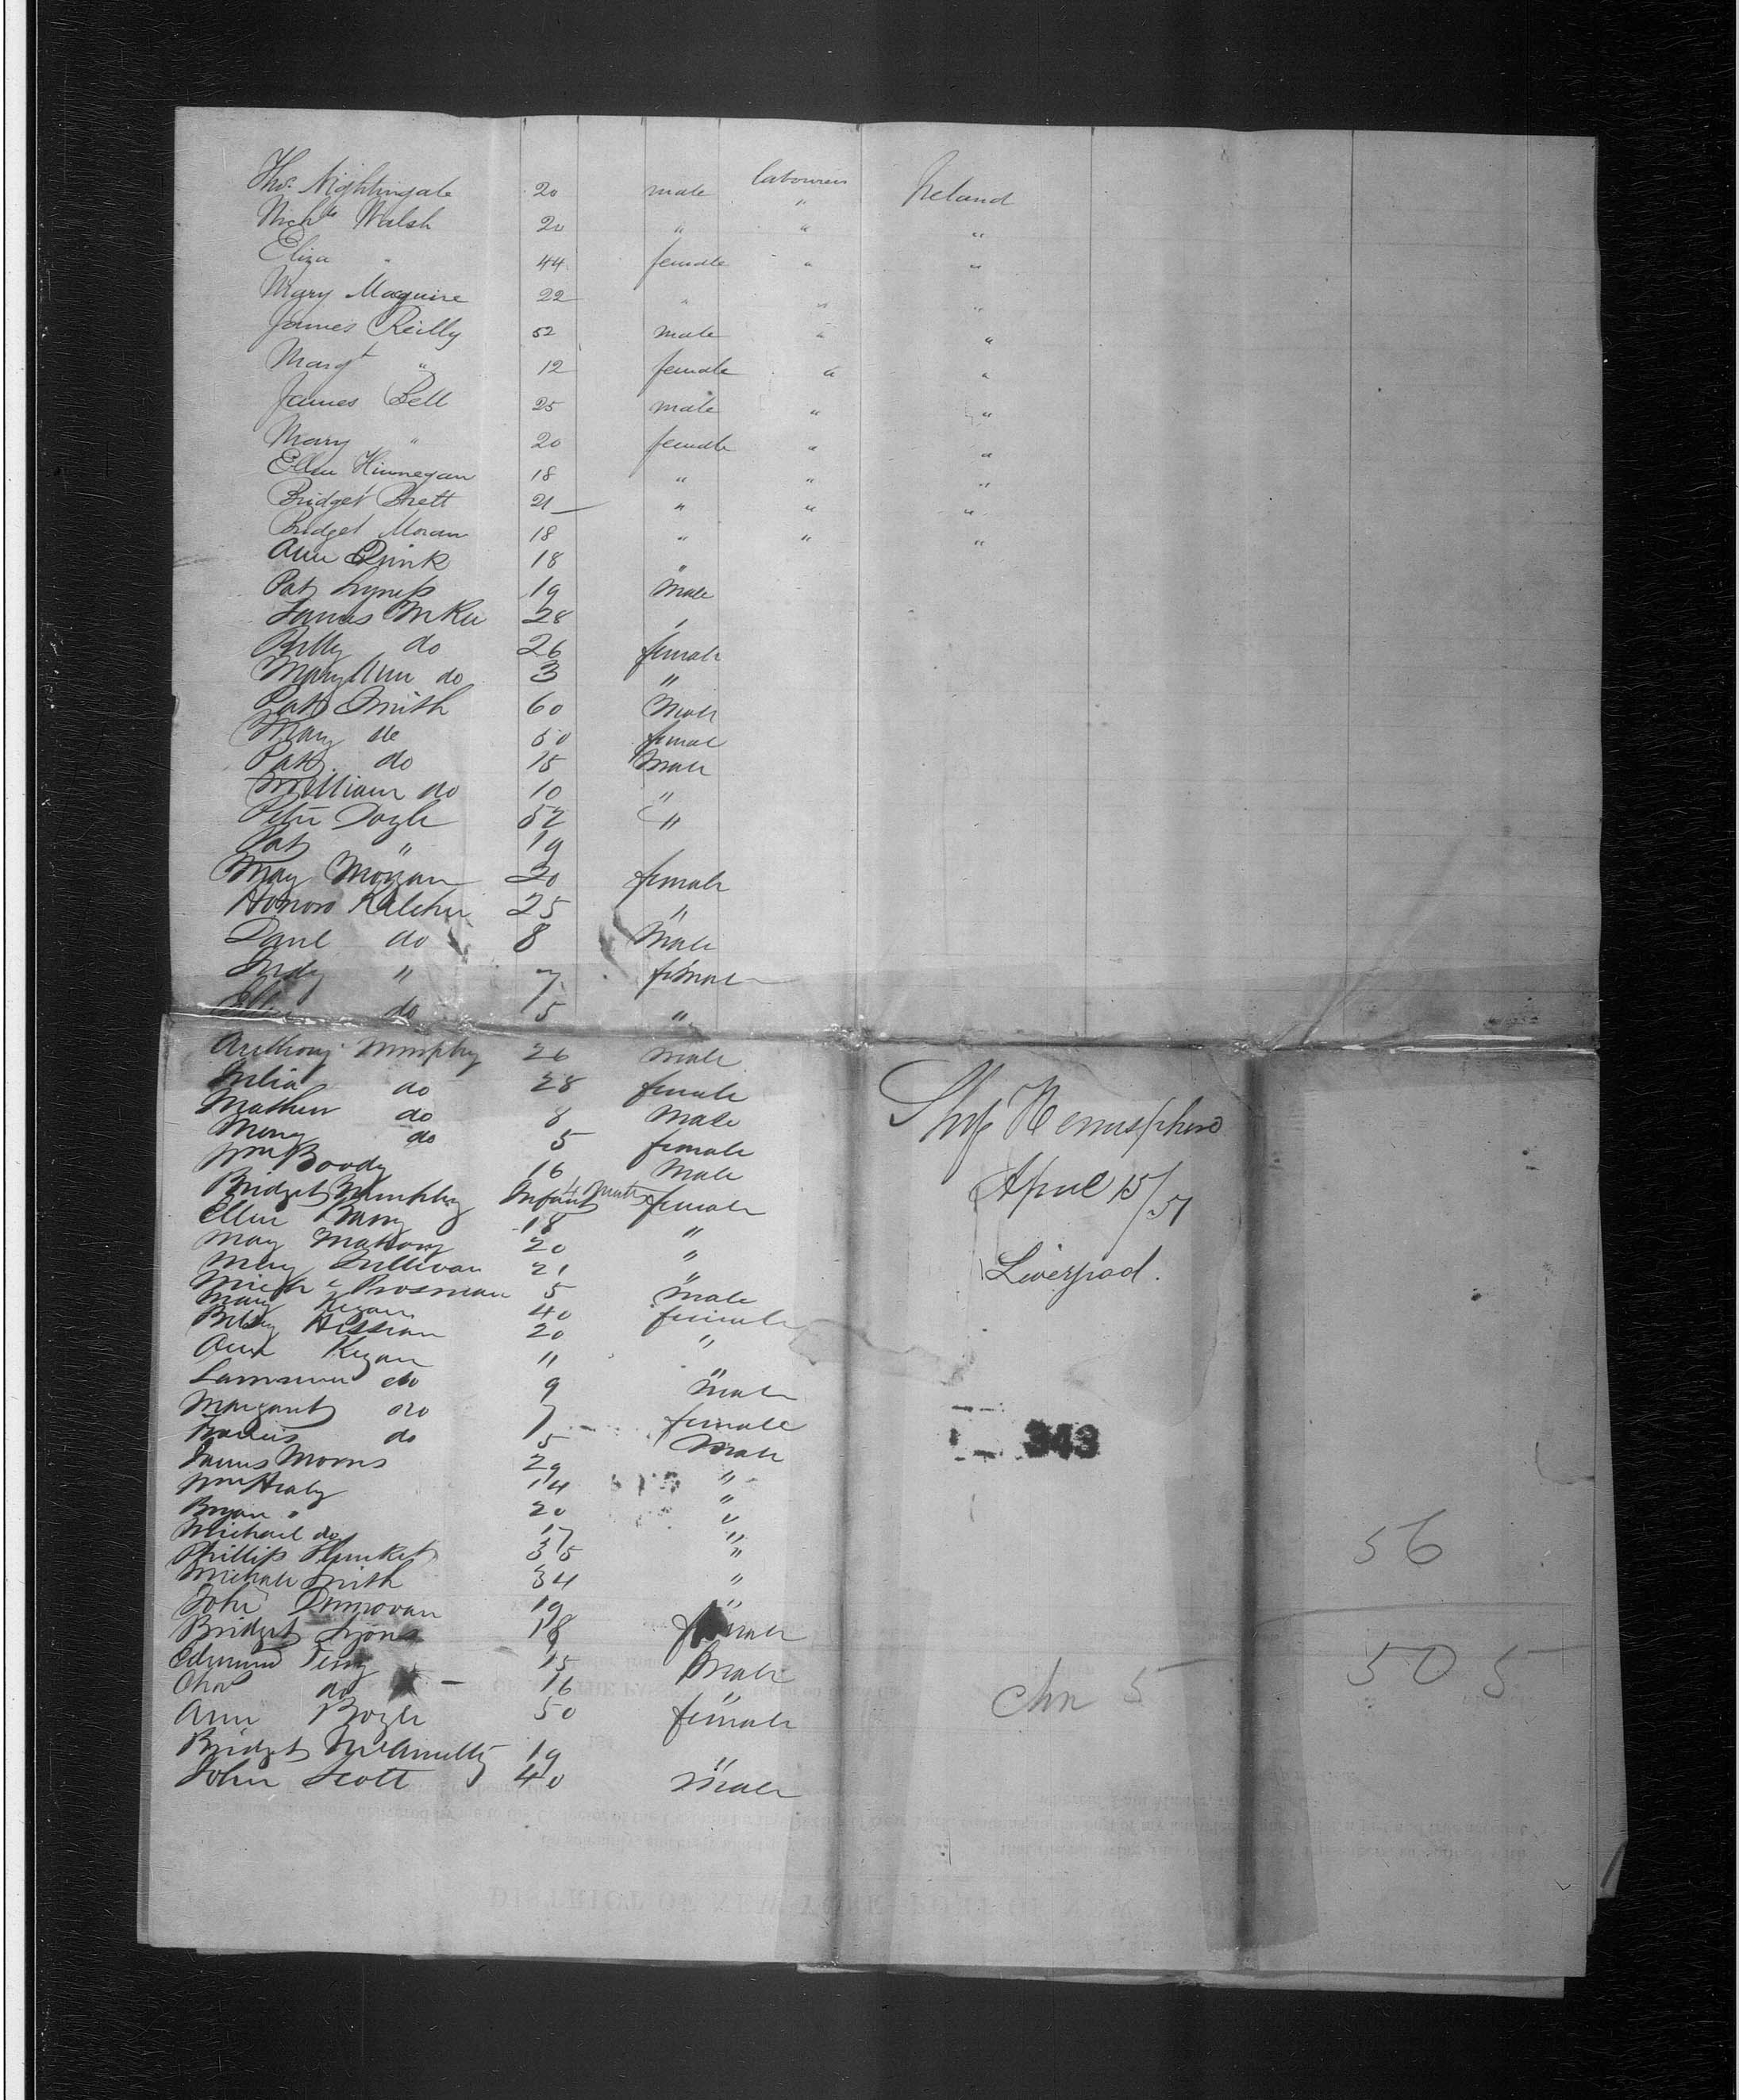 Thos. Nightingale 20 male labourers Ireland
Nichs Walsh 20 " " "
Eliza " 44 female " "
Mary Maguire 22 " " "
James Reilly 52 male " "
Margt " 12 female " "
James Bell 25 male " "
Mary " 20 female " "
Ellen Hinnegan 18 " " "
Bridget Brett 21 " " "
Bridget Moran 18 " " "
Ann Quink 18 "
Pat 19 Male
James McKee 28 "
Billy do 26 female
Mary Ann do 3 "
Patk Smith 60 Male
Mary do 50 female
Patk do 15 Male
William do 10 "
Peter Doyle 52 "
Pat " 19
Mary Morgan 20 female
Honora Kelcher 25 "
Danl do 8 Male
Judy " 7 female
Ellen do 5 "
Anthony Murphy 26 male
Julia do 28 female
Mathew do 8 Male
Mary do 5 female
Wm Boody 16 Male
Bridget Murphy Infant female
Ellen Barry 18 "
Mary Mahony 20 "
Mary Sullivan 21 "
Michl Brosnan 5 male
Mary Kegan 40 female
Betsy Hessian 20 "
Ann Kegan 11 "
do 9 male
Margaret do 7 female
Francis do 5 Male
James Morris 29 "
Wm Healy 14 "
Bryan " 20 "
Michael do 17 "
Phillip Plunket 35 "
Michael Smith 34 "
John Dunnovan 19 "
Bridget Lyons 18 female
Edmund Terry 15 Male
do 16 "
Ann Bogle 50 female
Bridget 19 "
John Scott 40 Male
Ship Hemisphere
April 15/51
Liverpool.
343
56
50 5
Chn 5